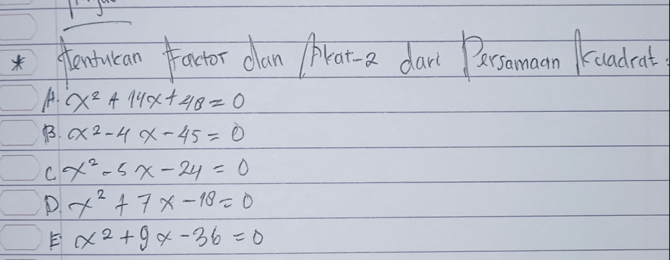 * Tentukan Factor dan Akat-2 dari Persamaan Kuadrat.
A. x² + 14x + 48 = 0
B. x² - 4x - 45 = 0
C. x² - 5x - 24 = 0
D. x² + 7x - 18 = 0
E. x² + 9x - 36 = 0